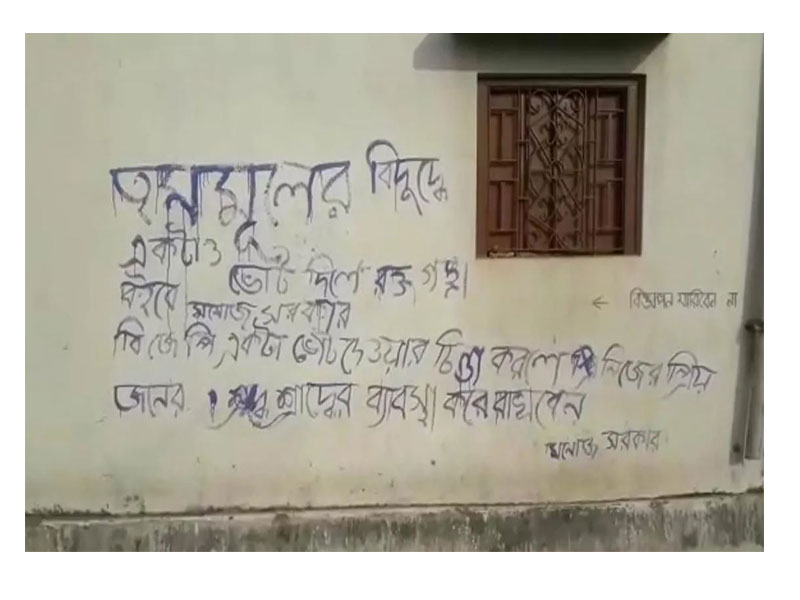 তৃনমূলের বিদুদ্ধে
একটাও ভোট দিলে রক্ত গঙ্গা
বইবে মনোজ সরকার
বিজেপি একটা ভোট দেওয়ার চিন্তা করলে নিজের প্রিয়
জনের শ্রাদ্ধের ব্যাবস্থা করে রাখবেন
মনোজ সরকার
← বিজ্ঞাপন মারিবেন না